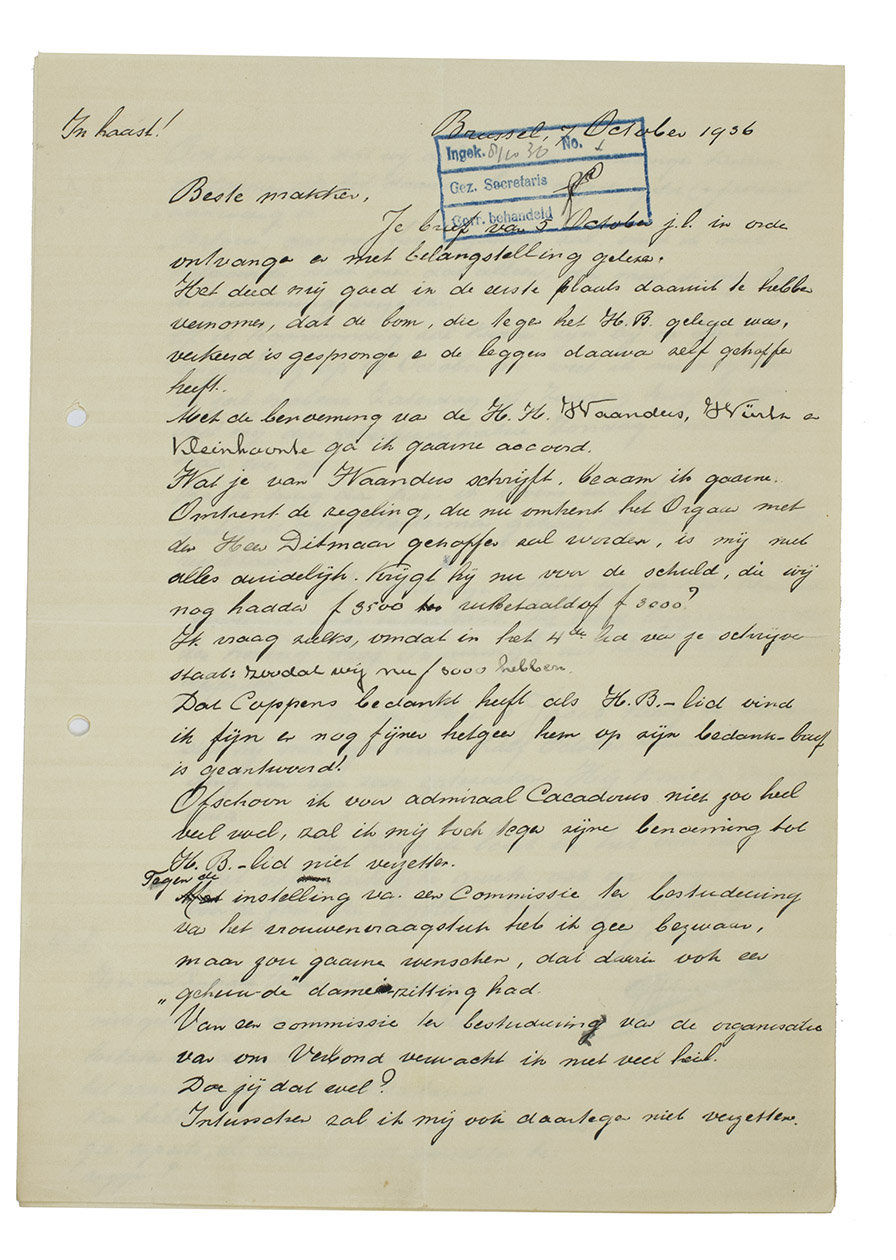 In haast!
Brussel, 7 October 1936
Ingek. 8/10 36 No.
Gez. Secretaris
Corr. behandeld
Beste makker,
Je brief van 5 October j.l. in orde
ontvangen en met belangstelling gelezen.
Het deed mij goed in de eerste plaats daaruit te hebben
vernomen, dat de bom, die tegen het H.B. gelegd was,
verkeerd is gesprongen en de leggers daarvan zelf getroffen
heeft.
Met de benoeming van de H.H. Waanders, Würtz en
Kleinhoonte ga ik gaarne accoord.
Wat je van Waanders schrijft, beaam ik gaarne.
Omtrent de regeling, die nu omtrent het Orgaan met
den Heer Ditmaar getroffen zal worden, is mij niet
alles duidelijk. Krijgt hij nu voor de schuld, die wij
nog hadden f 3500 uitbetaald of f 3000?
Ik vraag zulks, omdat in het 4de lid van je schrijven
staat: zoodat wij nu f 3000 hebben.
Dat Coppens bedankt heeft als H.B.-lid vind
ik fijn en nog fijner hetgeen hem op zijn bedank-brief
is geantwoord!
Ofschoon ik voor admiraal Cacadorus niet zoo heel
veel voel, zal ik mij toch tegen zijne benoeming tot
H.B.-lid niet verzetten.
Tegen de instelling van een Commissie ter bestudeering
van het vrouwenvraagstuk heb ik geen bezwaar,
maar zou gaarne wenschen, dat daarin ook een
„gehuwde" dame zitting had.
Van een commissie ter bestudeering van de organisatie
van ons Verbond verwacht ik niet veel heil.
Doe jij dat wel?
Intusschen zal ik mij ook daartegen niet verzetten.